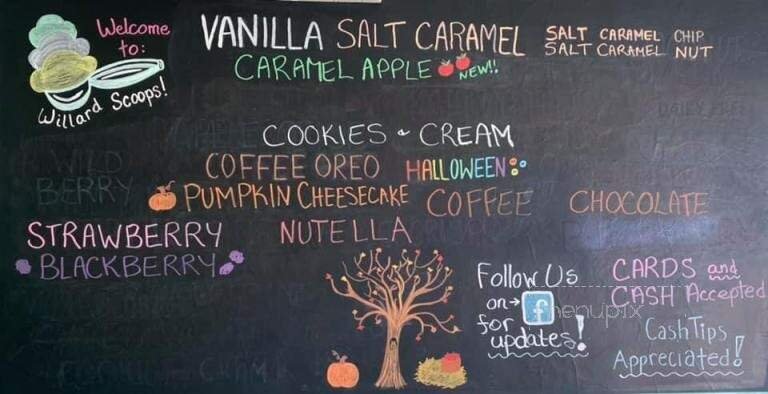 Welcome
to:
Willard Scoops!
VANILLA SALT CARAMEL
SALT CARAMEL CHIP
SALT CARAMEL NUT
CARAMEL APPLE NEW!!
COOKIES & CREAM
COFFEE OREO HALLOWEEN
WILD
BERRY
PUMPKIN CHEESECAKE COFFEE CHOCOLATE
STRAWBERRY NUTELLA
BLACKBERRY
Follow Us
on→ f
for
updates!
CARDS and
CASH Accepted
menupix
Cash Tips
Appreciated!